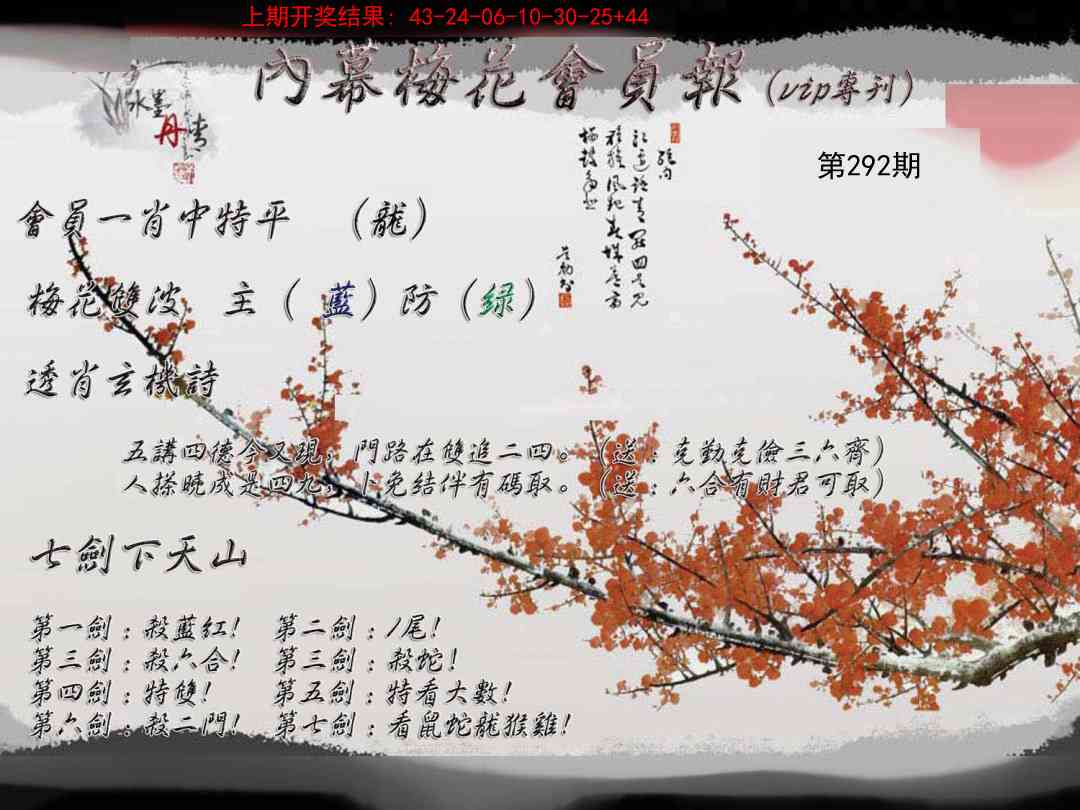 上期开奖结果: 43-24-06-10-30-25+44
內幕梅花會員報(vip專刊)
水墨
丹青
第292期
會員一肖中特平 (龍)
梅花雙波 主(藍)防(綠)
透肖玄機詩
五講四德今又現，門路在雙進二四。(送:克勤克儉三六齊)
人搽曉成是四九，卜免结伴有碼取。(送:六合有財君可取)
七劍下天山
第一劍:殺藍紅! 第二劍:1尾!
第三劍:殺六合! 第三劍:殺蛇!
第四劍:特雙! 第五劍:特看大數!
第六劍:殺二門! 第七劍:看鼠蛇龍猴雞!